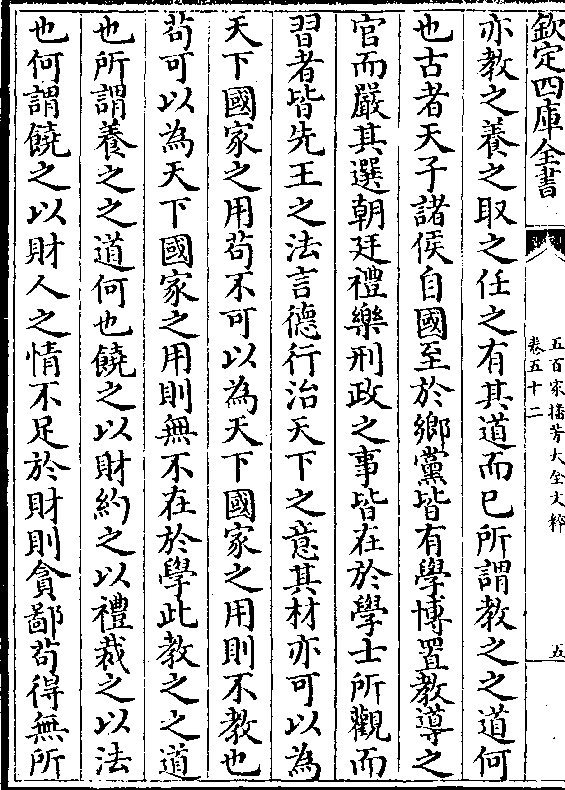 欽定四庫全書
五百家播芳大全文粹
卷五十二
五
亦教之養之取之任之有其道而已所謂教之之道何
也古者天子諸侯自國至於鄉黨皆有學博置教導之
官而嚴其選朝廷禮樂刑政之事皆在於學士所觀而
習者皆先王之法言德行治天下之意其材亦可以為
天下國家之用茍不可以為天下國家之用則不教也
茍可以為天下國家之用則無不在於學此教之之道
也所謂養之之道何也饒之以財約之以禮裁之以法
也何謂饒之以財人之情不足於財則貪鄙茍得無所